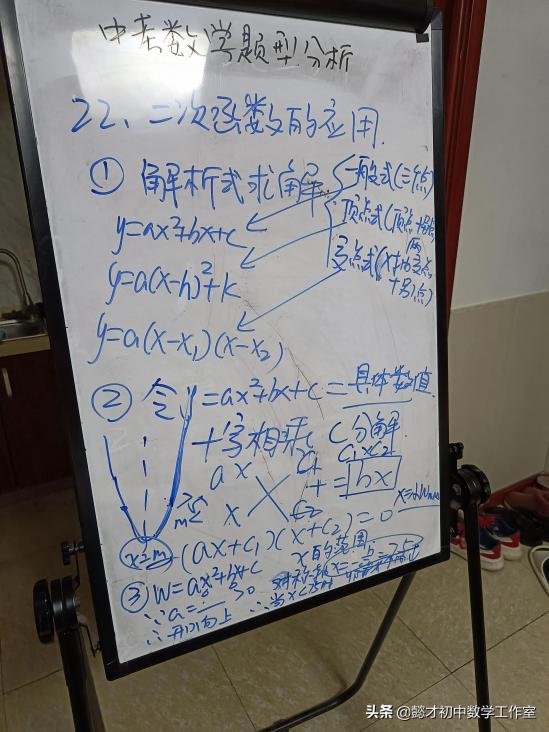 中考数学题型分析
22、二次函数的应用.
① 解析式求解
一般式(三个点)
顶点式(顶点+另一点)
交点式(X轴两交点
+另1点)
y=ax²+bx+c
y=a(x-h)²+k
y=a(x-x₁)(x-x₂)
② 令y=ax²+bx+c=具体数值.
十字相乘 C分解
C₁×C₂
ax C₁
x C₂
+=bx
(ax+c₁)(x+c₂)=0
x的范围
③ W=ax²+bx+c
∵a= >0
∴开口向上
对称轴x=
∴当x
头条 @懿才初中数学工作室